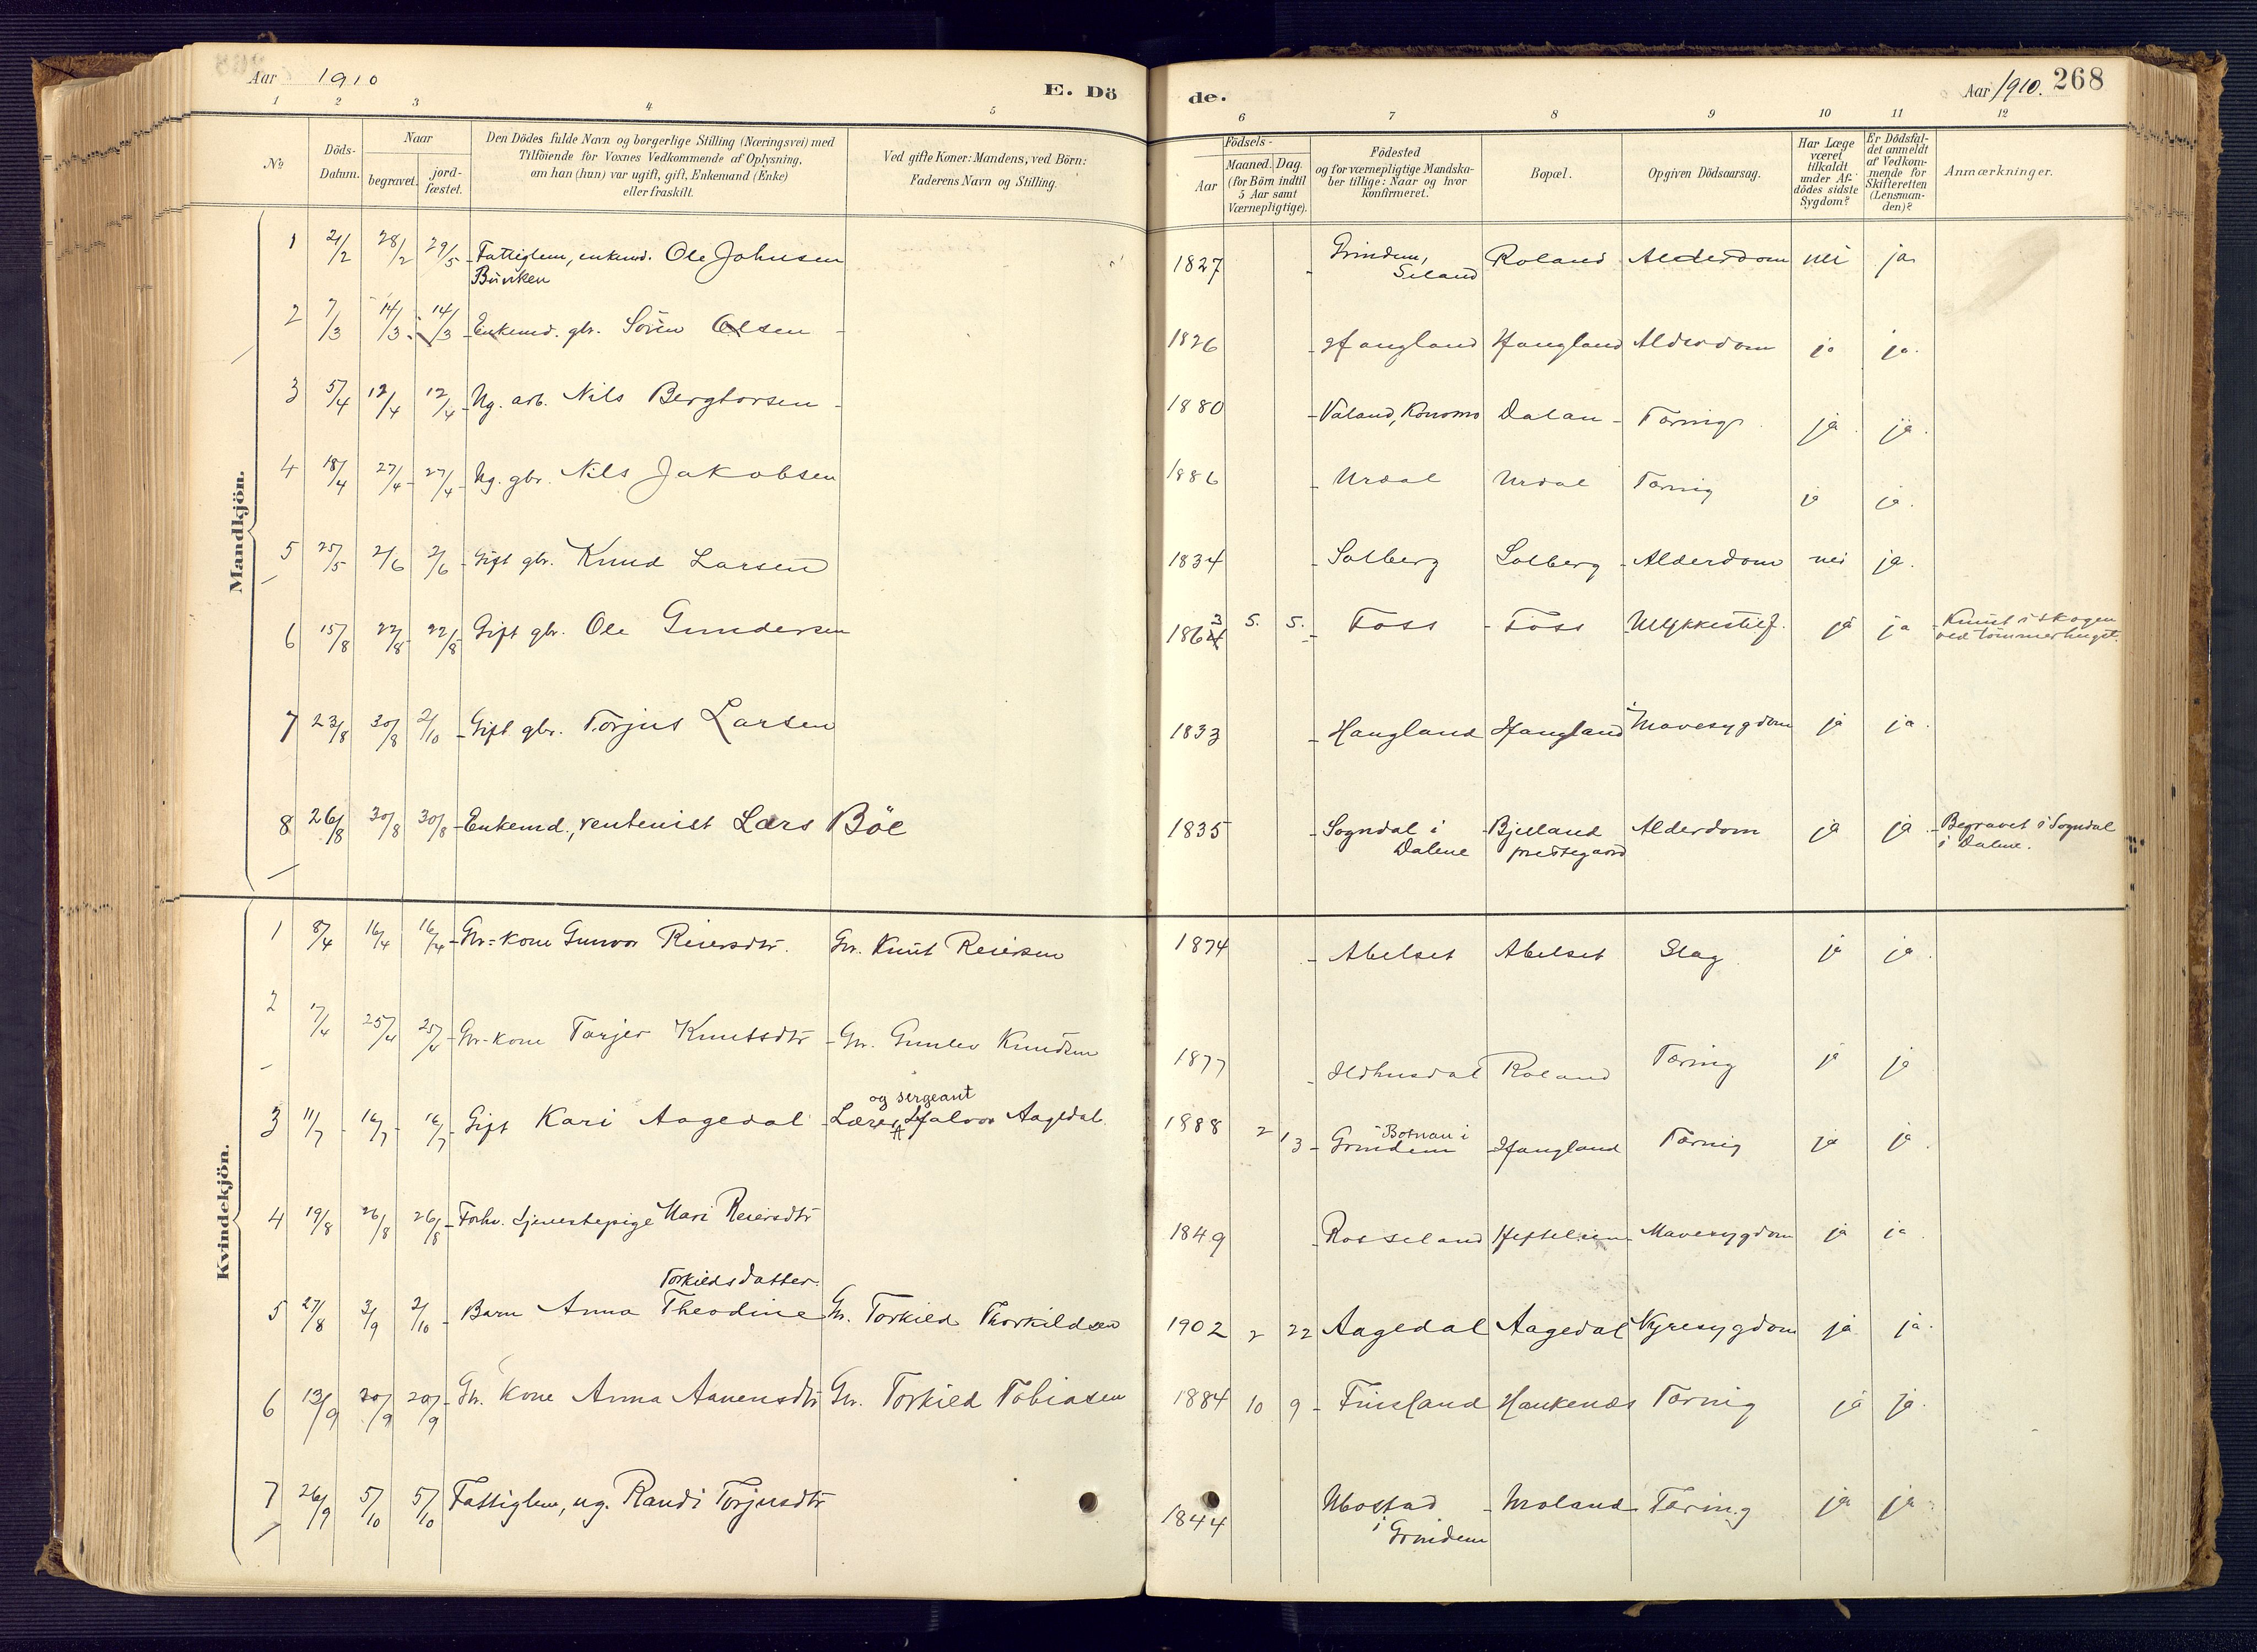 Aar 1910
E. Dö
de.
Aar 1910. 268
1 2 3 4 5 6 7 8 9 10 11 12
No
Döds-Datum.
Naar
begravet.
jord-fæstet.
Den Dödes fulde Navn og borgerlige Stilling (Næringsvei) med
Tilföiende for Voxnes Vedkommende af Oplysning,
om han (hun) var ugift, gift, Enkemand (Enke)
eller fraskilt.
Ved gifte Koner: Mandens, ved Börn:
Faderens Navn og Stilling.
Födsels-
Aar
Maaned. Dag.
(for Börn indtil
5 Aar samt
Værnepligtige).
Födested
og for værnepligtige Mandska-
ber tillige: Naar og hvor
konfirmeret.
Bopæl.
Opgiven Dödsaarsag.
Har Læge
været
tilkaldt
under Af-
dödes sidste
Sygdom?
Er Dödsfal-
det anmeldt
af Vedkom-
mende for
Skifteretten
(Lensman-
den)?
Anmærkninger.
Mandkjön.
1 21/2 28/2 29/5 Fattiglem, enkemd. Ole Johnsen 1827 Grindem, Roland Alderdom nei ja
Seland
2 7/3 14/3 14/3 Enkemd. gbr. Sören Olsen 1826 Haugland Haugland Alderdom ja ja
3 5/4 12/4 12/4 Ug. arb. Nils Bergtorsen 1880 Valand, Konsmo Dalan Tæring ja ja
4 18/4 27/4 27/4 Ug. gbr. Nils Jakobsen 1886 Urdal Urdal Tæring ja ja
5 25/5 2/6 2/6 Gift gbr. Knud Larsen 1834 Solberg Solberg Alderdom nei ja
6 15/8 22/8 22/8 Gift gbr. Ole Gundersen 1863 5. 5. Foss Foss Ulykkestilf. ja ja Knust i skogen
ved tömmerhugst.
7 23/8 30/8 2/10 Gift gbr. Torjus Larsen 1833 Haugland Haugland Mavesygdom ja ja
8 26/8 30/8 30/8 Enkemd., rentenist Lars Böe 1835 Sogndal i Bjelland Alderdom ja ja Begravet i Sogndal
Dalene prestegaard i Dalene.
Kvindekjön.
1 8/4 16/4 16/4 Gbr-kone Gunvor Reiersdtr. Gbr. Knut Reiersen 1874 Abelset Abelset Slag ja ja
2 17/4 25/4 25/4 Gbr-kone Tarjer Knutsdtr Gbr. Gunlev Knudsen 1877 Ildhusdal Roland Tæring ja ja
og sergeant
3 11/7 16/7 16/7 Gift Kari Aagedal Lærer Halvor Aagedal 1888 2 13 Botnan i Haugland Tæring ja ja
Grindem
4 19/8 26/8 26/8 Forhv. tjenestepige Mari Reiersdtr 1849 Rosseland Mavesygdom ja ja
Torkildsdatter
5 27/8 3/9 2/10 Barn Anna Theodine Gbr. Torkild Thorkildsen 1902 2 22 Aagedal Aagedal Nyresygdom ja ja
6 13/9 20/9 20/9 Gbr. kone Anna Aanensdtr Gbr. Torkild Tobiasen 1884 10 9 Finsland Haukenæs Tæring ja ja
7 26/9 5/10 5/10 Fattiglem, ug. Randi Torjusdtr 1844 Ubostad Moland Tæring ja ja
i Grindem